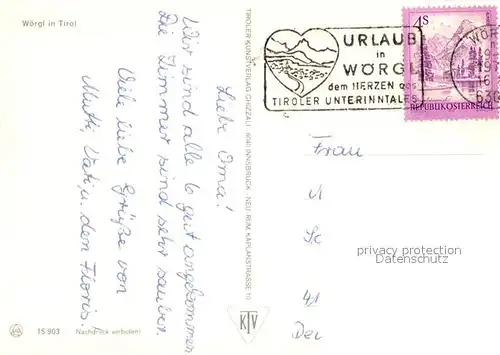 Wörgl in Tirol
Liebe Oma!
Wir sind alle 6 gut angekommen
Die Zimmer sind sehr sauber.
Viele liebe Grüße von
Mutti, Vati, u. den
15 903 Nachdruck verboten!
TIROLER KUNSTVERLAG CHIZZALI · 6041 INNSBRUCK - NEU RUM, KAPLANSTRASSE 10
KTV
URLAUB
in
WÖRGL
dem HERZEN des
TIROLER UNTERINNTALES
4S
REPUBLIK ÖSTERREICH
WÖR
Frau
privacy protection
oldthing.de